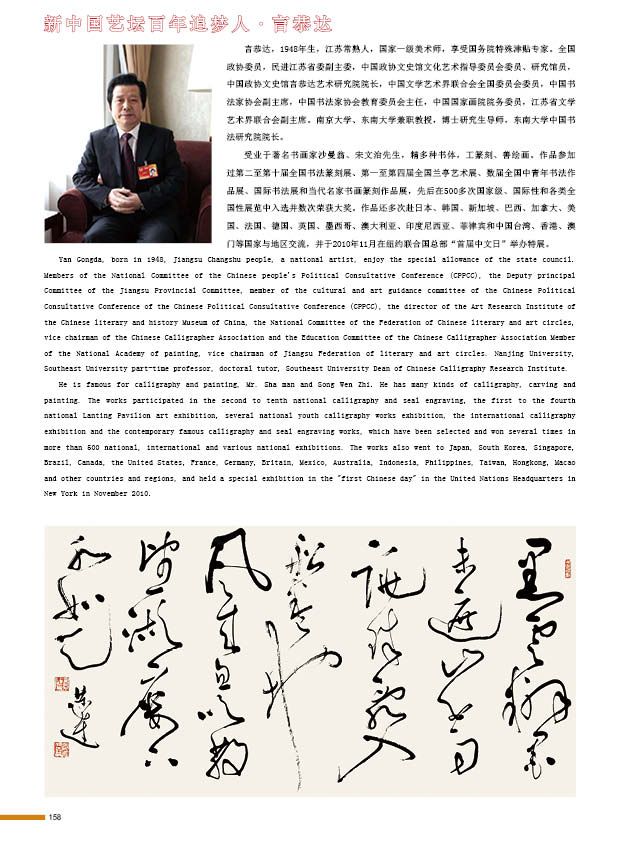 新中国艺坛百年追梦人·言恭达
言恭达，1948年生，江苏常熟人，国家一级美术师，享受国务院特殊津贴专家。全国
政协委员，民进江苏省委副主委，中国政协文史馆文化艺术指导委员会委员、研究馆员，
中国政协文史馆言恭达艺术研究院院长，中国文学艺术界联合会全国委员会委员，中国书
法家协会副主席，中国书法家协会教育委员会主任，中国国家画院院务委员，江苏省文学
艺术界联合会副主席。南京大学、东南大学兼职教授，博士研究生导师，东南大学中国书
法研究院院长。
受业于著名书画家沙曼翁、宋文治先生，精多种书体，工篆刻、善绘画。作品参加
过第二至第十届全国书法篆刻展、第一至第四届全国兰亭艺术展、数届全国中青年书法作
品展、国际书法展和当代名家书画篆刻作品展，先后在500多次国家级、国际性和各类全
国性展览中入选并数次荣获大奖。作品还多次赴日本、韩国、新加坡、巴西、加拿大、美
国、法国、德国、英国、墨西哥、澳大利亚、印度尼西亚、菲律宾和中国台湾、香港、澳
门等国家与地区交流，并于2010年11月在纽约联合国总部“首届中文日”举办特展。
Yan Gongda, born in 1948, Jiangsu Changshu people, a national artist, enjoy the special allowance of the state council.
Members of the National Committee of the Chinese people's Political Consultative Conference (CPPCC), the Deputy principal
Committee of the Jiangsu Provincial Committee, member of the cultural and art guidance committee of the Chinese Political
Consultative Conference of the Chinese Political Consultative Conference (CPPCC), the director of the Art Research Institute of
the Chinese literary and history Museum of China, the National Committee of the Federation of Chinese literary and art circles,
vice chairman of the Chinese Calligrapher Association and the Education Committee of the Chinese Calligrapher Association Member
of the National Academy of painting, vice chairman of Jiangsu Federation of literary and art circles. Nanjing University,
Southeast University part-time professor, doctoral tutor, Southeast University Dean of Chinese Calligraphy Research Institute.
He is famous for calligraphy and painting, Mr. Sha man and Song Wen Zhi. He has many kinds of calligraphy, carving and
painting. The works participated in the second to tenth national calligraphy and seal engraving, the first to the fourth
national Lanting Pavilion art exhibition, several national youth calligraphy works exhibition, the international calligraphy
exhibition and the contemporary famous calligraphy and seal engraving works, which have been selected and won several times in
more than 500 national, international and various national exhibitions. The works also went to Japan, South Korea, Singapore,
Brazil, Canada, the United States, France, Germany, Britain, Mexico, Australia, Indonesia, Philippines, Taiwan, Hongkong, Macao
and other countries and regions, and held a special exhibition in the "first Chinese day" in the United Nations Headquarters in
New York in November 2010.
黑云翻墨
未遮山白雨
跳珠乱入
船卷地
风来忽吹散
望湖楼下
水如天
恭达
158